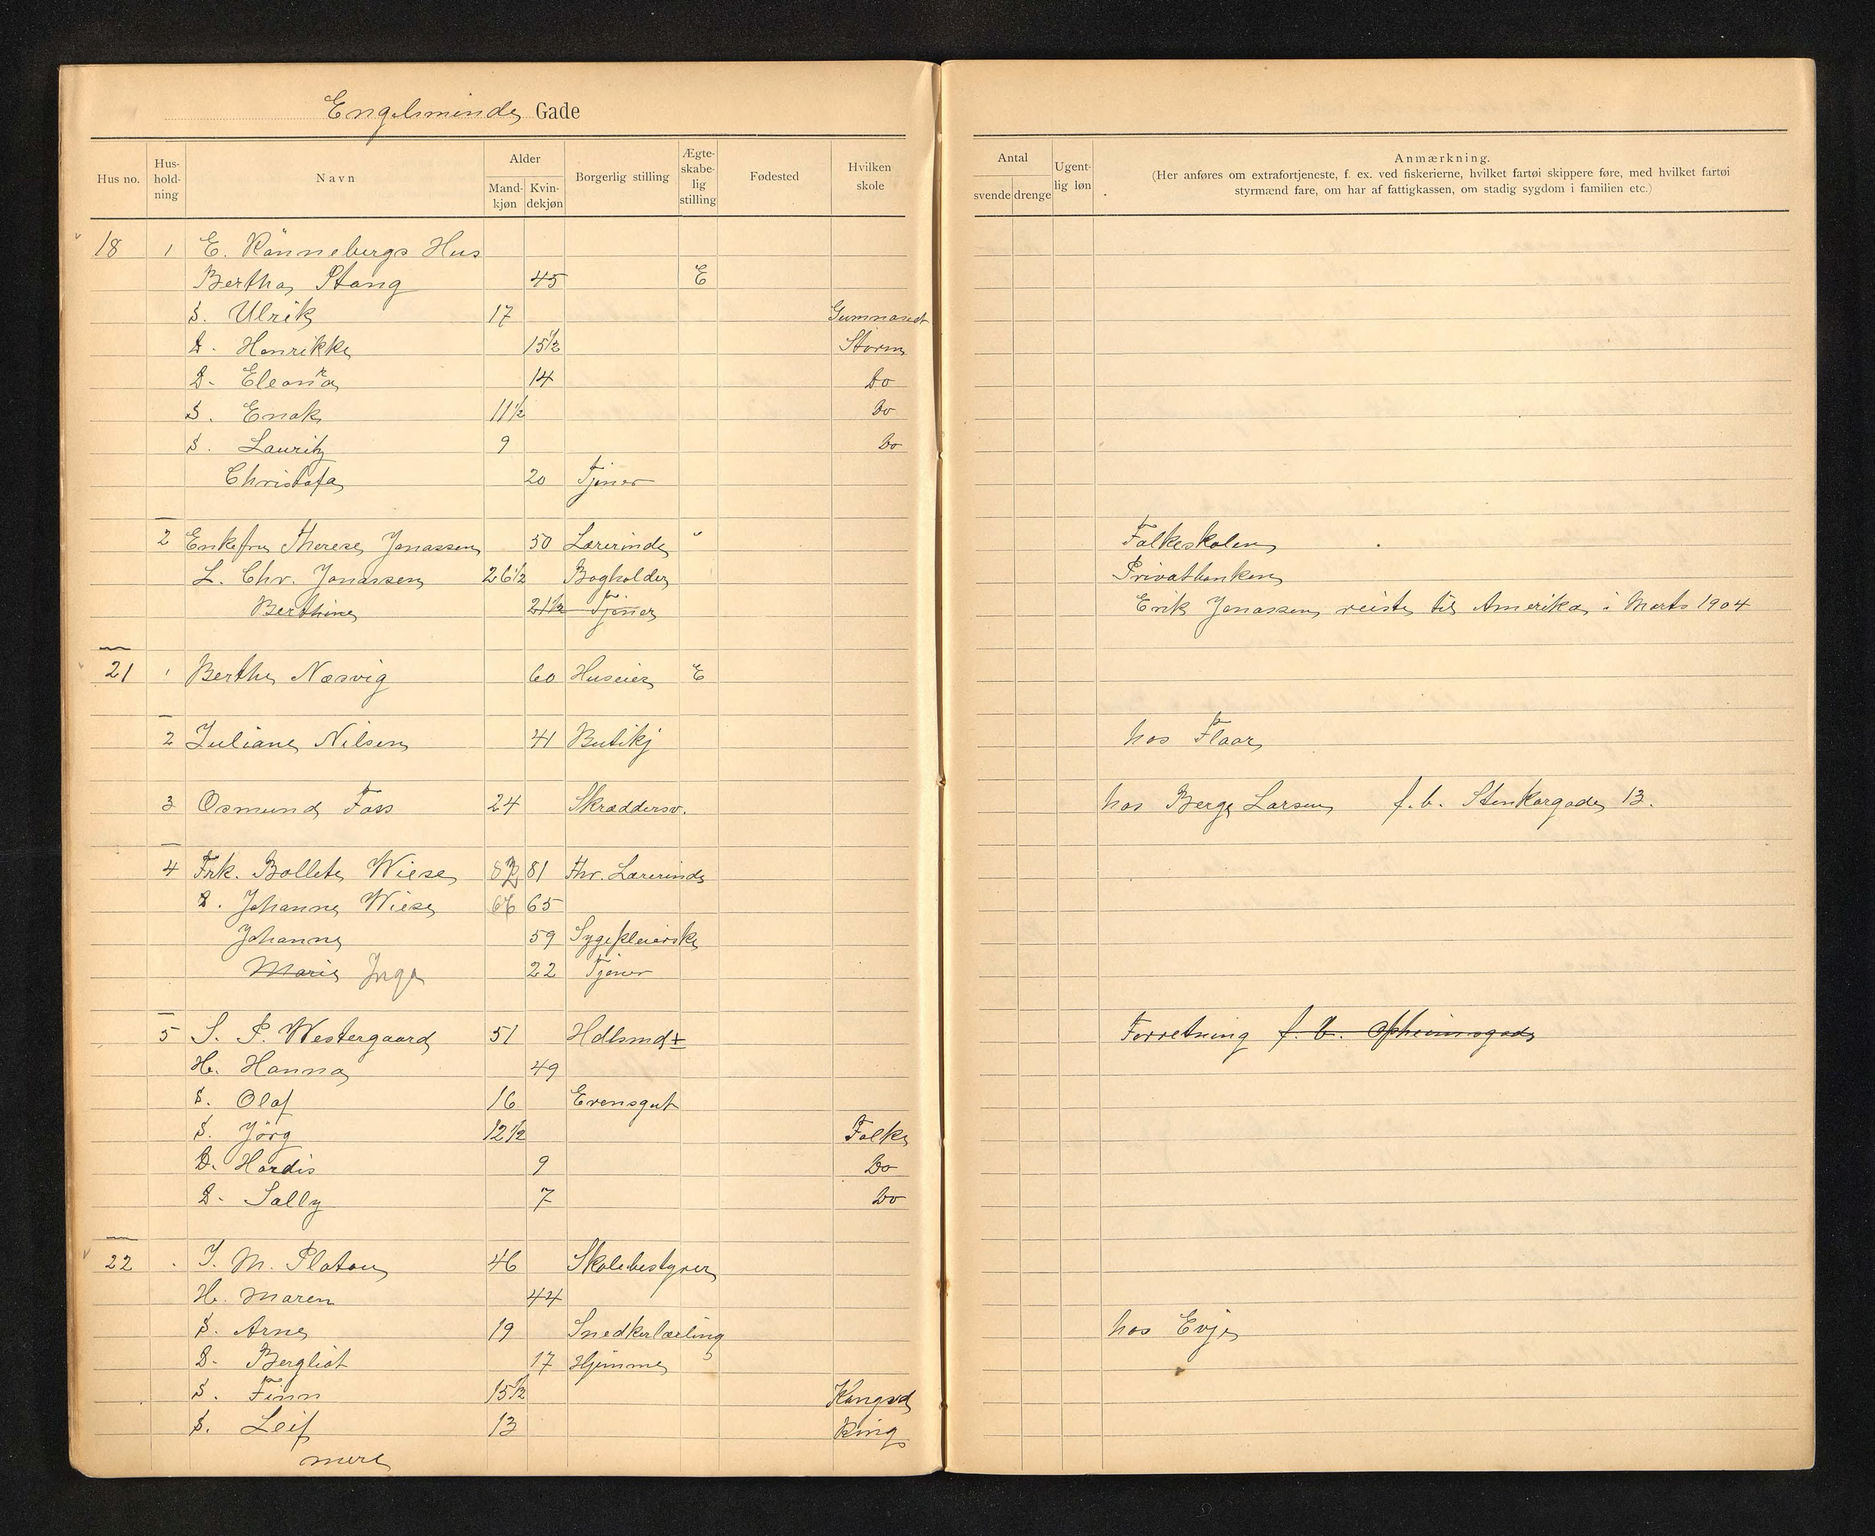 Engelsminde Gade
Hus no. Hus-hold-ning Navn Alder Mand-kjøn Kvin-dekjøn Borgerlig stilling Ægte-skabe-lig stilling Fødested Hvilken skole
Antal svende drenge Ugent-lig løn Anmærkning.
(Her anføres om extrafortjeneste, f. ex. ved fiskerierne, hvilket fartøi skippere føre, med hvilket fartøi
styrmænd fare, om har af fattigkassen, om stadig sygdom i familien etc.)
18 1 E. Rønnebergs Hus
Bertha Stang 45 E
S. Ulrik 17
D. Henrikke 15 1/2 Storm
D. Eleonora 14 Do
S. Enok 11 1/2 Do
S. Lauritz 9 Do
Christofa 20 Tjener
2 Enkefru Therese Jonassen 50 Lærerinde " Folkeskolen
L. Chr. Jonassen 26 1/2 Bogholder Privatbanken
Berthine 21 1/2 Tjener Erik Jonassen reiste til Amerika i Marts 1904
21 1 Berthe Næsvig 60 Huseier E
2 Juliane Nilsen 41 Butikj hos Flaar
3 Osmund Foss 24 Skræddersv. hos Berge Larsen f.b. Stenkargade 13.
4 Frk. Bollete Wiese 81 fhv. Lærerinde
D. Johanne Wiese 66 65
Johanne 59 Sygepleierske
Marie Inga 22 Tjener
5 S. P. Westergaard 51 Hdlsmd ± Forretning f. b. Opheimsgade
H. Hanna 49
S. Olaf 16 Erensgut
S. Jørg 12 1/2 Folke
D. Hardis 9 Do
D. Sally 7 Do
22 J. M. Platou 46 Skolebestyrer
H. Maren 44
S. Arne 19 Snedkerlærling hos Evje
D. Bergliot 17 Hjemme
S. Finn 15 1/2 Kongsd
S. Leif 13 King
mere